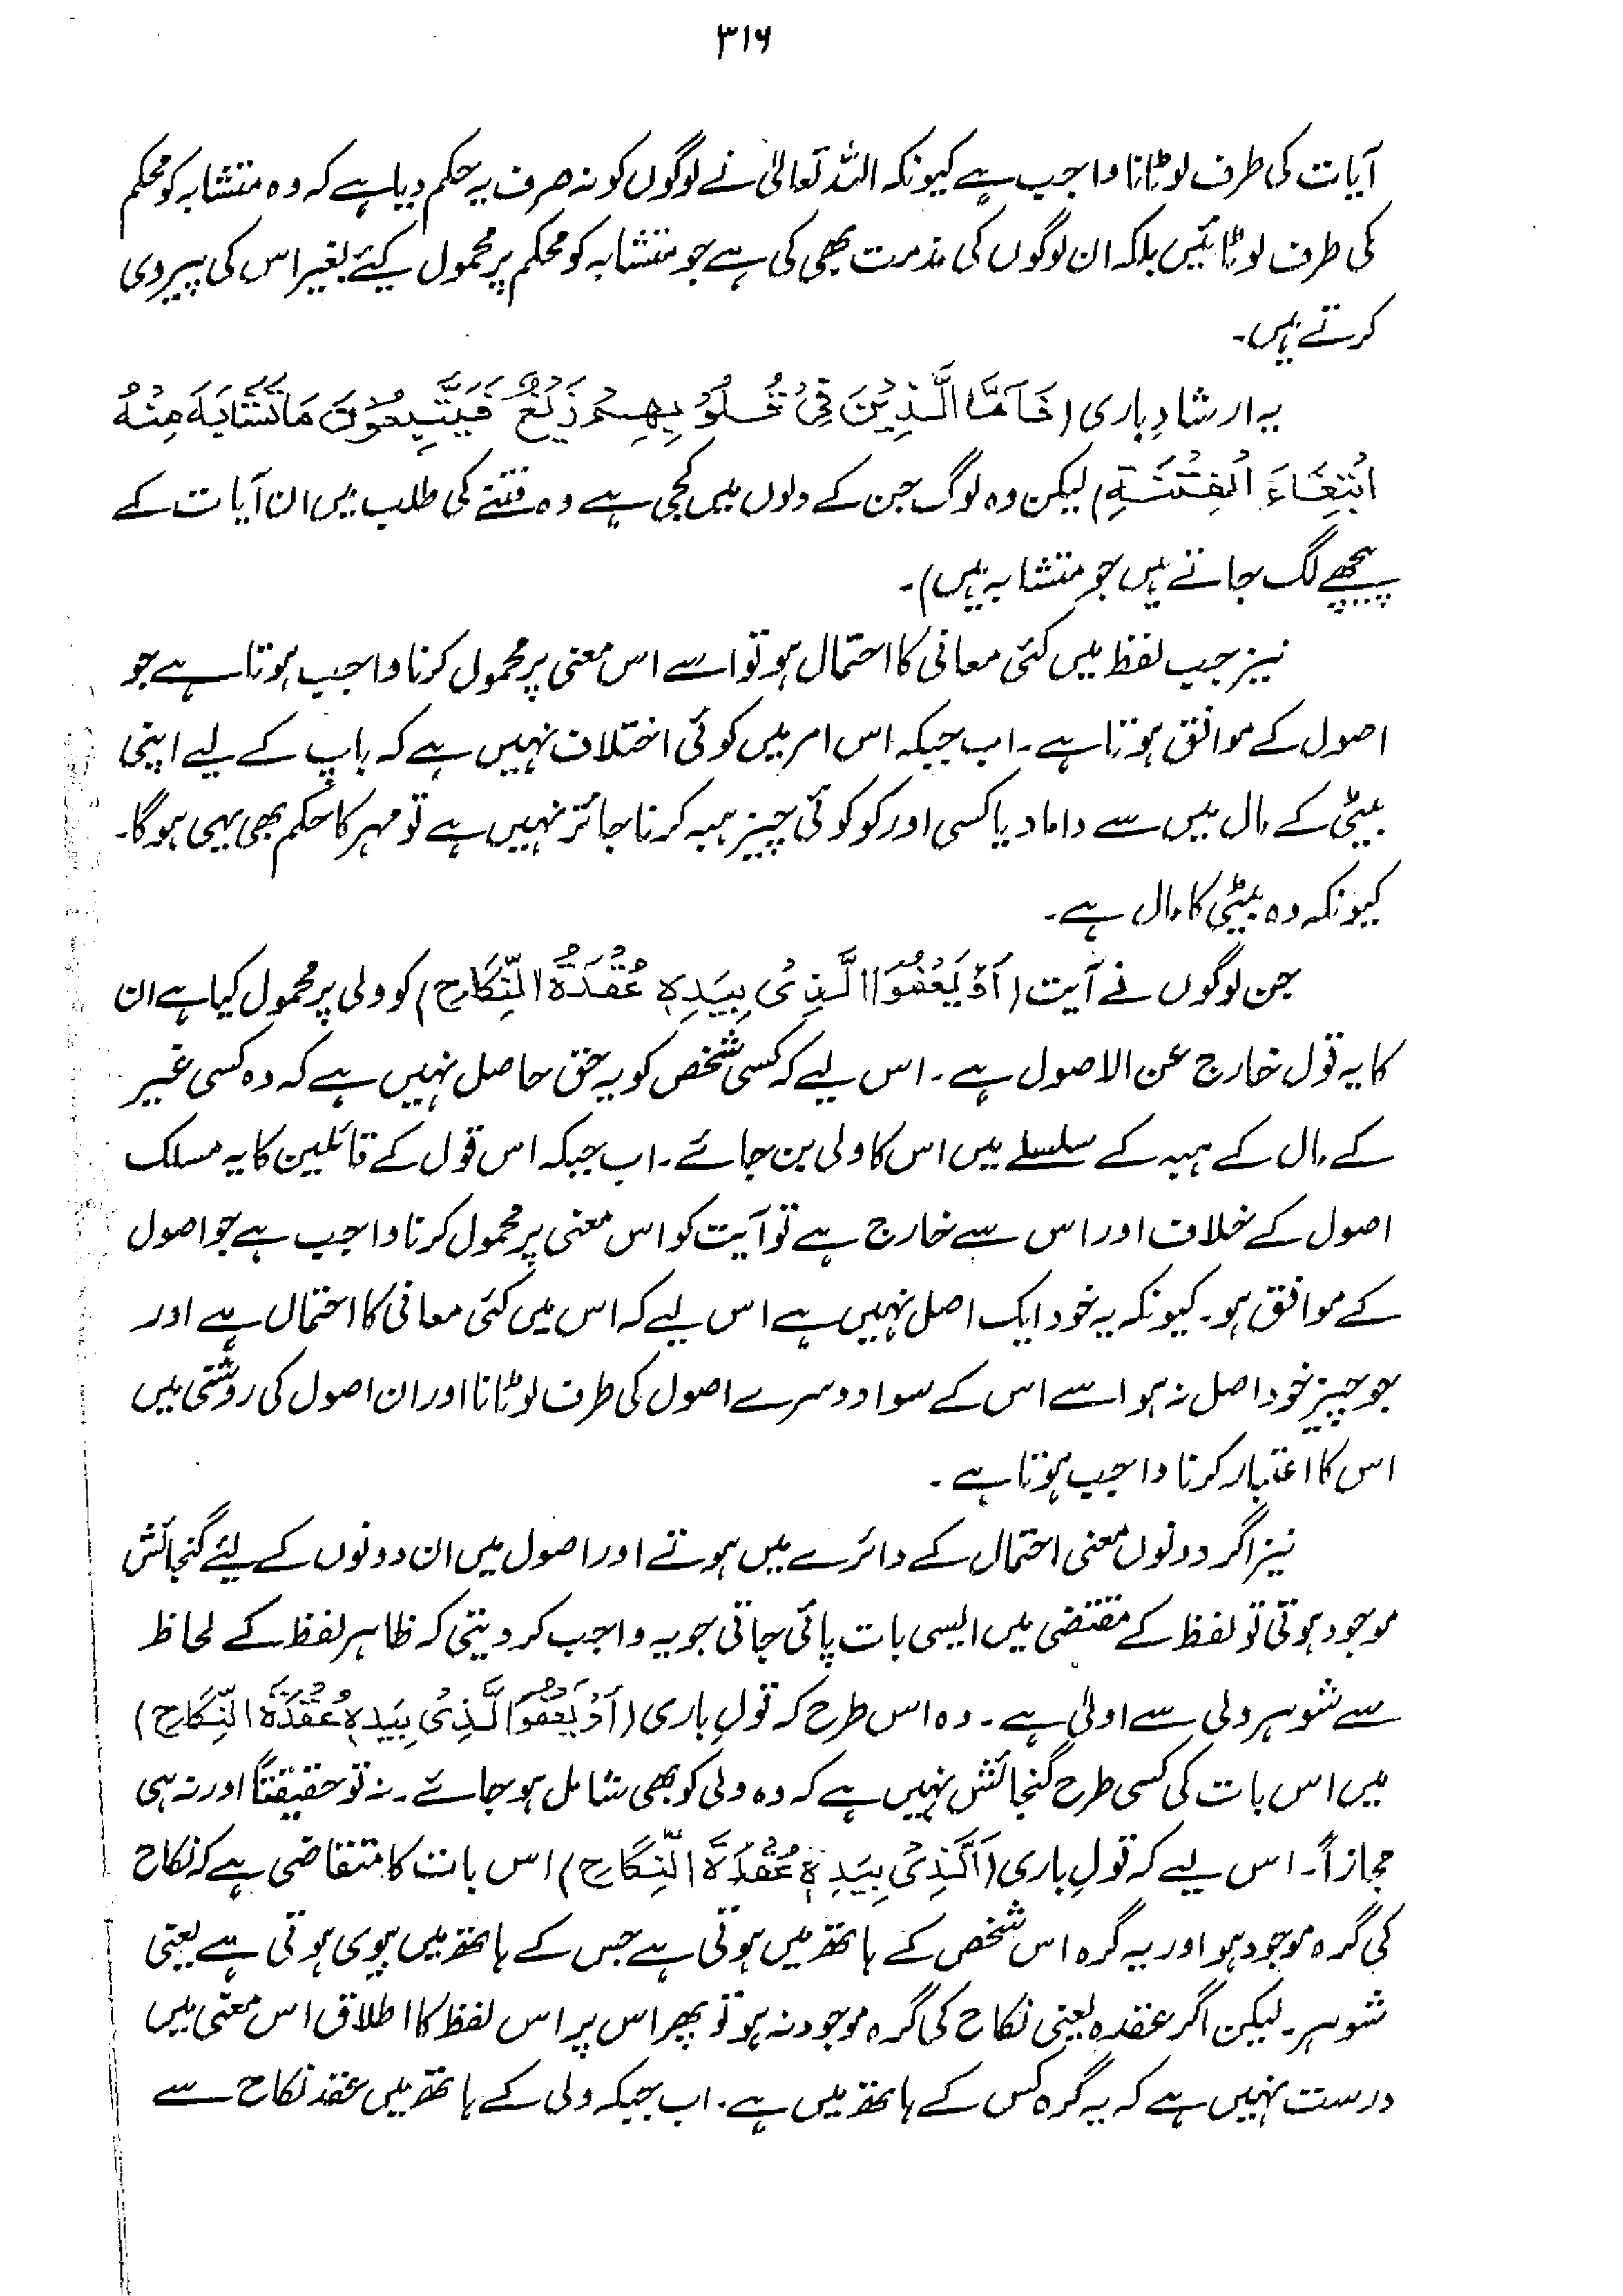 ۳۱۶
آیات کی طرف لوٹانا واجب ہے کیونکہ اللہ تعالیٰ نے لوگوں کو نہ صرف یہ حکم دیا ہے کہ وہ متشابہ کو محکم
کی طرف لوٹائیں بلکہ ان لوگوں کی مذمت بھی کی ہے جو متشابہ کو محکم پر محمول کیئے بغیر اس کی پیروی
کرتے ہیں۔
یہ ارشادِ باری (فَاَمَّا الَّذِیْنَ فِیْ قُلُوْبِهِمْ زَیْغٌ فَیَتَّبِعُوْنَ مَا تَشَابَهَ مِنْهُ
ابْتِغَاءَ الْفِتْنَةِ) لیکن وہ لوگ جن کے دلوں میں کجی ہے وہ فتنے کی طلب میں ان آیات کے
پیچھے لگ جاتے ہیں جو متشابہ ہیں)۔
نیز جب لفظ میں کئی معانی کا احتمال ہو تو اسے اس معنی پر محمول کرنا واجب ہوتا ہے جو
اصول کے موافق ہوتا ہے۔ اب جبکہ اس امر میں کوئی اختلاف نہیں ہے کہ باپ کے لیے اپنی
بیٹی کے مال میں سے داماد یا کسی اور کو کوئی چیز ہبہ کرنا جائز نہیں ہے تو مہر کا حکم بھی یہی ہوگا۔
کیونکہ وہ بیٹی کا مال ہے۔
جن لوگوں نے آیت (اَوْ یَعْفُوَا الَّذِیْ بِیَدِهٖ عُقْدَةُ النِّكَاحِ) کو ولی پر محمول کیا ہے ان
کا یہ قول خارج عن الاصول ہے۔ اس لیے کہ کسی شخص کو یہ حق حاصل نہیں ہے کہ وہ کسی غیر
کے مال کے ہبہ کے سلسلے میں اس کا ولی بن جائے۔ اب جبکہ اس قول کے قائلین کا یہ مسلک
اصول کے خلاف اور اس سے خارج ہے تو آیت کو اس معنی پر محمول کرنا واجب ہے جو اصول
کے موافق ہو۔ کیونکہ یہ خود ایک اصل نہیں ہے اس لیے کہ اس میں کئی معانی کا احتمال ہے اور
جو چیز خود اصل نہ ہو اسے اس کے سوا دوسرے اصول کی طرف لوٹانا اور ان اصول کی روشنی میں
اس کا اعتبار کرنا واجب ہوتا ہے۔
نیز اگر دونوں معنی احتمال کے دائرے میں ہوتے اور اصول میں ان دونوں کے لیئے گنجائش
موجود ہوتی تو لفظ کے مقتضی میں ایسی بات پائی جاتی جو یہ واجب کر دیتی کہ ظاہر لفظ کے لحاظ
سے شوہر ولی سے اولیٰ ہے۔ وہ اس طرح کہ قولِ باری (اَوْ یَعْفُوَا الَّذِیْ بِیَدِهٖ عُقْدَةُ النِّكَاحِ)
میں اس بات کی کسی طرح گنجائش نہیں ہے کہ وہ ولی کو بھی شامل ہو جائے۔ نہ تو حقیقتاً اور نہ ہی
مجازاً۔ اس لیے کہ قولِ باری (اَلَّذِیْ بِیَدِهٖ عُقْدَةُ النِّكَاحِ) اس بات کا متقاضی ہے کہ نکاح
کی گرہ موجود ہو اور یہ گرہ اس شخص کے ہاتھ میں ہوتی ہے جس کے ہاتھ میں بیوی ہوتی ہے یعنی
شوہر۔ لیکن اگر عقدہ یعنی نکاح کی گرہ موجود نہ ہو تو پھر اس پر اس لفظ کا اطلاق اس معنی میں
درست نہیں ہے کہ یہ گرہ کس کے ہاتھ میں ہے۔ اب جبکہ ولی کے ہاتھ میں عقد نکاح سے